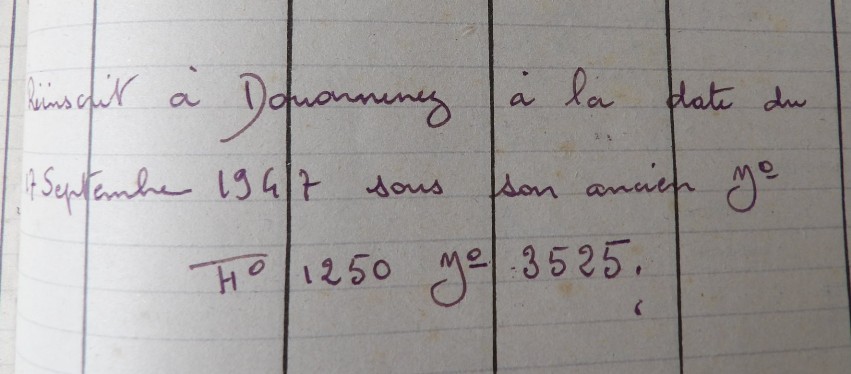 Réinscrit à Douarnenez à la date du
17 Septembre 1947 sous son ancien No
Fo 1250 No 3525.